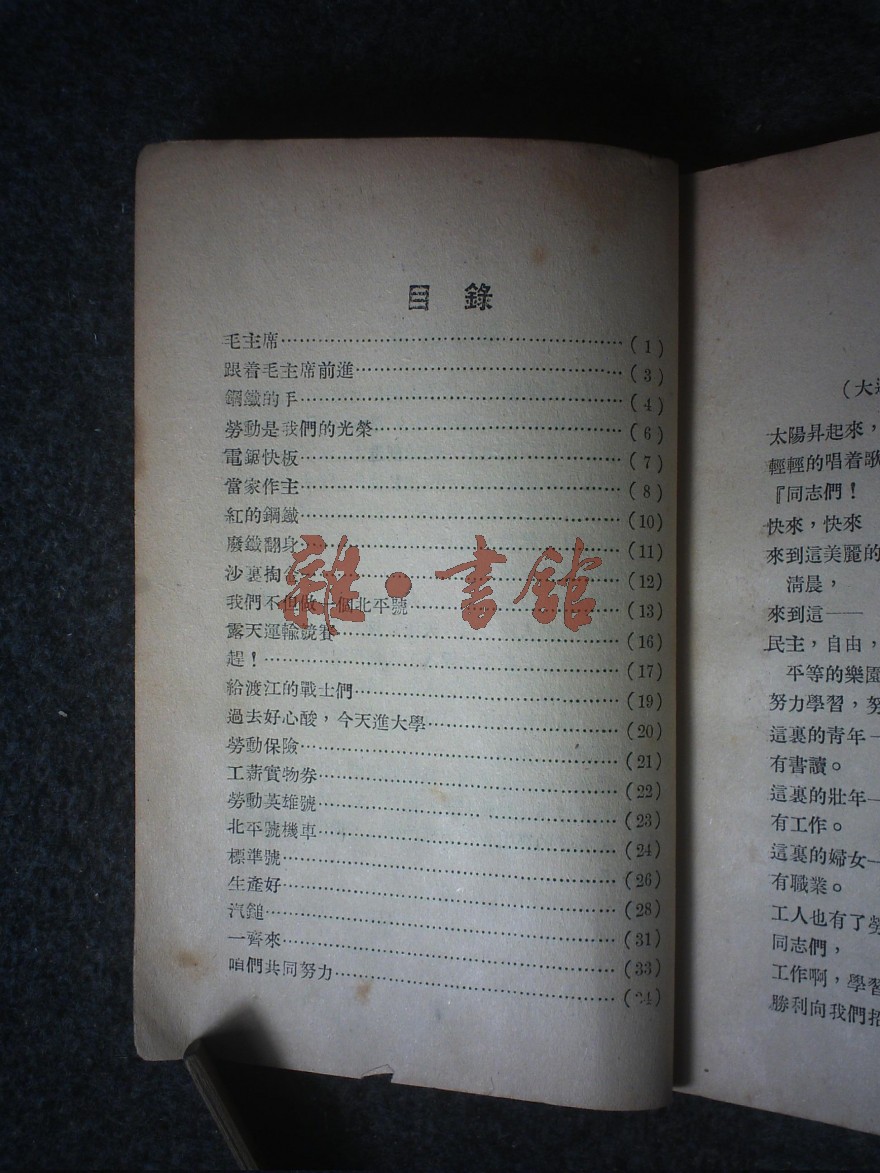 目錄
毛主席……(1)
跟着毛主席前進……(3)
鋼鐵的手……(4)
勞動是我們的光榮……(6)
電鋸快板……(7)
當家作主……(8)
紅的鋼鐵……(10)
廢鐵翻身……(11)
沙裏掏……(12)
我們不但做十個北平號……(13)
露天運輸競賽……(16)
趕！……(17)
給渡江的戰士們……(19)
過去好心酸，今天進大學……(20)
勞動保險……(21)
工薪實物券……(22)
勞動英雄號……(23)
北平號機車……(24)
標準號……(26)
生產好……(28)
汽鎚……(31)
一齊來……(33)
咱們共同努力……
雜·書館
(大
太陽昇起來，
輕輕的唱着歌
『同志們！
快來，快來
來到這美麗的
清晨，
來到這——
民主，自由，
平等的樂園
努力學習，努
這裏的青年—
有書讀。
這裏的壯年—
有工作。
這裏的婦女—
有職業。
工人也有了勞
同志們，
工作啊，學習
勝利向我們招